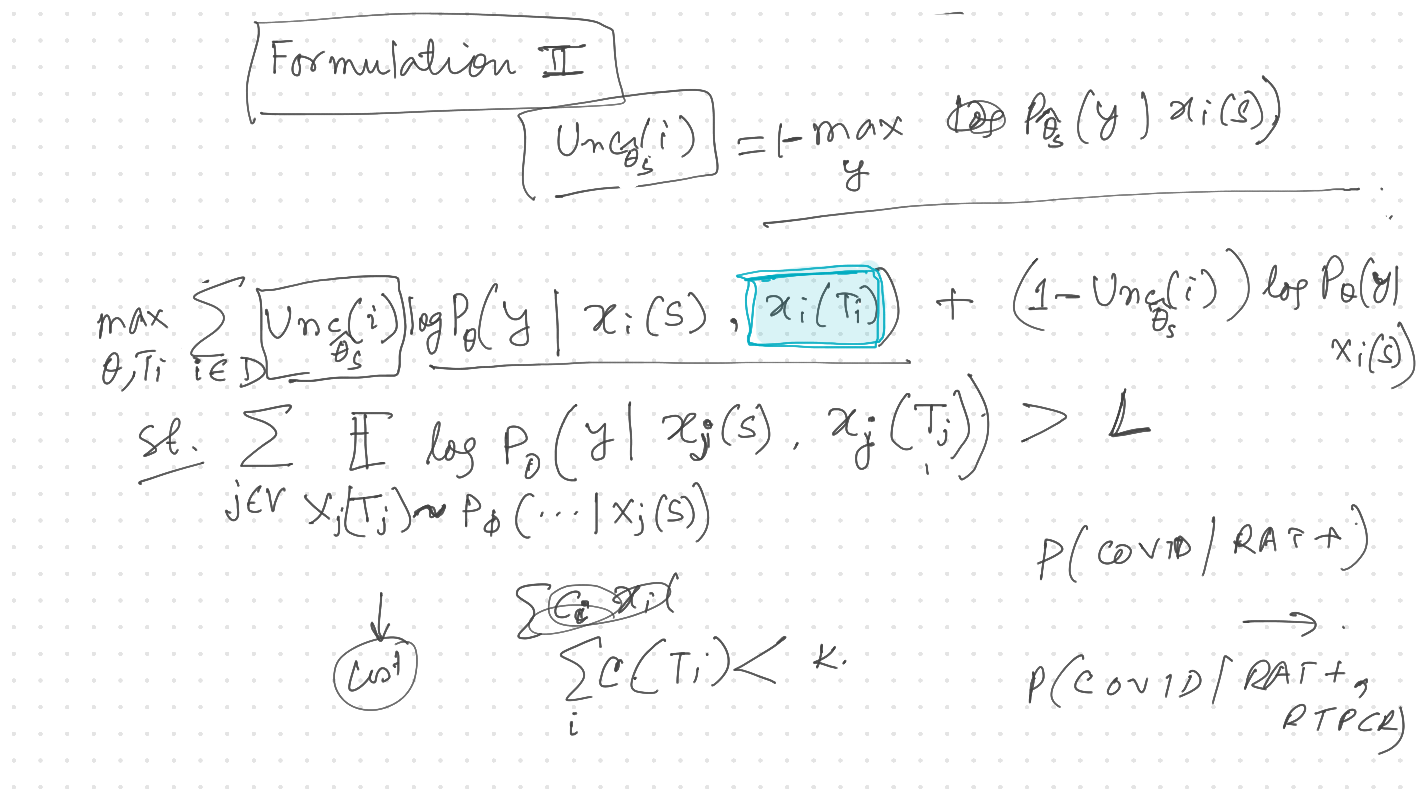 Formulation II
Unc_{θ̂_S}(i) = 1 - max_y P_{θ̂_S}(y | x_i(S))
max_{θ,T_i} ∑_{i∈D} Unc_{θ̂_S}(i) log P_θ(y | x_i(S), x_i(T_i)) + (1 - Unc_{θ̂_S}(i)) log P_θ(y | x_i(S))
st. ∑_{j∈V} E_{X_j(T_j) ~ P_φ(... | X_j(S))} log P_θ(y | x_j(S), x_j(T_j)) > L
P(COVID / RAT+)
Cost
∑_i C(T_i) < K.
P(COVID / RAT+, RTPCR)